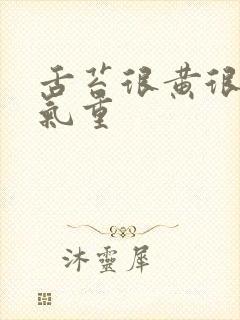 舌苔很黄很
氣重
沐靈犀